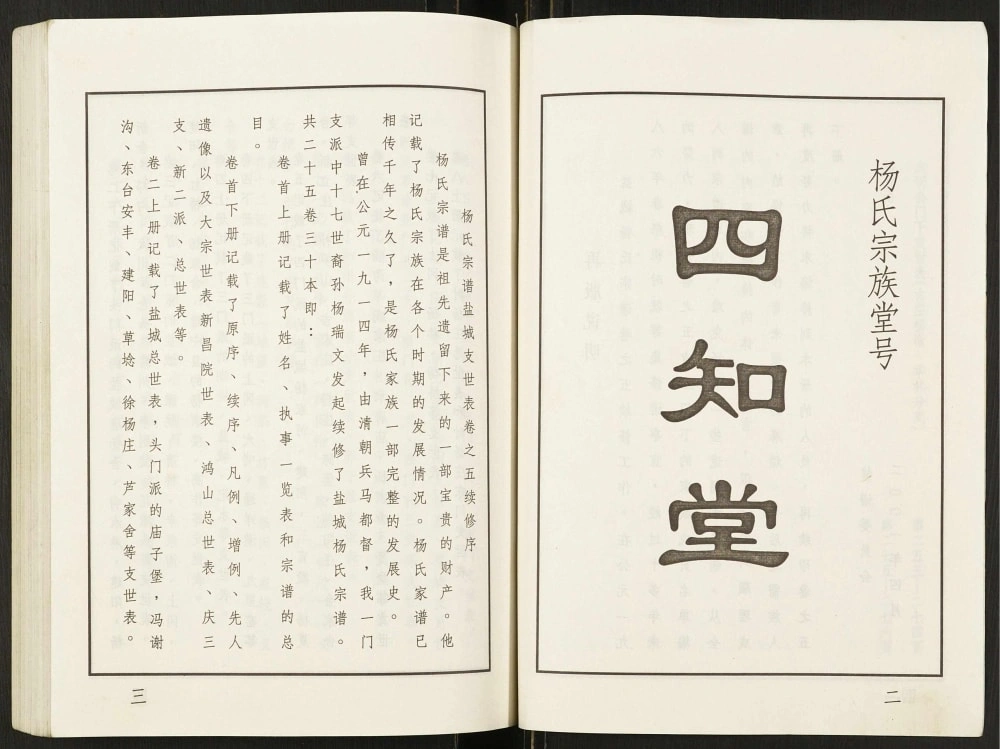 杨氏宗族堂号
四知堂
二
杨氏宗谱盐城支世表卷之五续修序
杨氏宗谱是祖先遗留下来的一部宝贵的财产。他
记载了杨氏宗族在各个时期的发展情况。杨氏家谱已
相传千年之久了，是杨氏家族一部完整的发展史。
曾在公元一九一四年，由清朝兵马都督，我一门
支派中十七世裔孙杨瑞文发起续修了盐城杨氏宗谱。
共二十五卷三十本即：
卷首上册记载了姓名、执事一览表和宗谱的总
目。
卷首下册记载了原序、续序、凡例、增例、先人
遗像以及大宗世表新昌院世表、鸿山总世表、庆三
支、新二派、总世表等。
卷二上册记载了盐城总世表，头门派的庙子堡，冯谢
沟、东台安丰、建阳、草埝、徐杨庄、芦家舍等支世表。
三